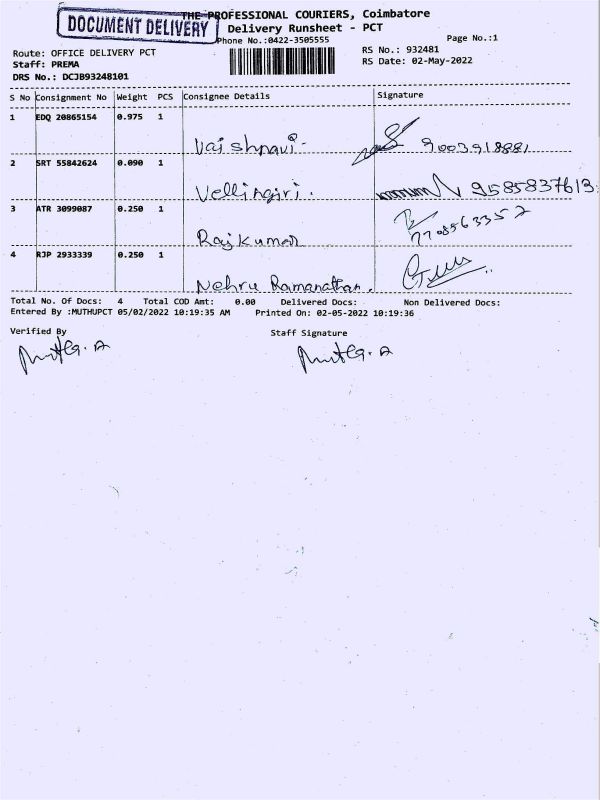 DOCUMENT DELIVERY
THE PROFESSIONAL COURIERS, Coimbatore
Delivery Runsheet - PCT
Phone No.:0422-3505555
Page No.:1
Route: OFFICE DELIVERY PCT
RS No.: 932481
Staff: PREMA
RS Date: 02-May-2022
DRS No.: DCJB93248101
S No Consignment No Weight PCS Consignee Details Signature
1 EDQ 20865154 0.975 1
Vaishnavi. 9003918881
2 SRT 55842624 0.090 1
Vellingiri. 9585837613
3 ATR 3099087 0.250 1
Rajkumar 7708563352
4 RJP 2933339 0.250 1
Nehru Ramanathan.
Total No. Of Docs: 4 Total COD Amt: 0.00 Delivered Docs: Non Delivered Docs:
Entered By :MUTHUPCT 05/02/2022 10:19:35 AM Printed On: 02-05-2022 10:19:36
Verified By Staff Signature